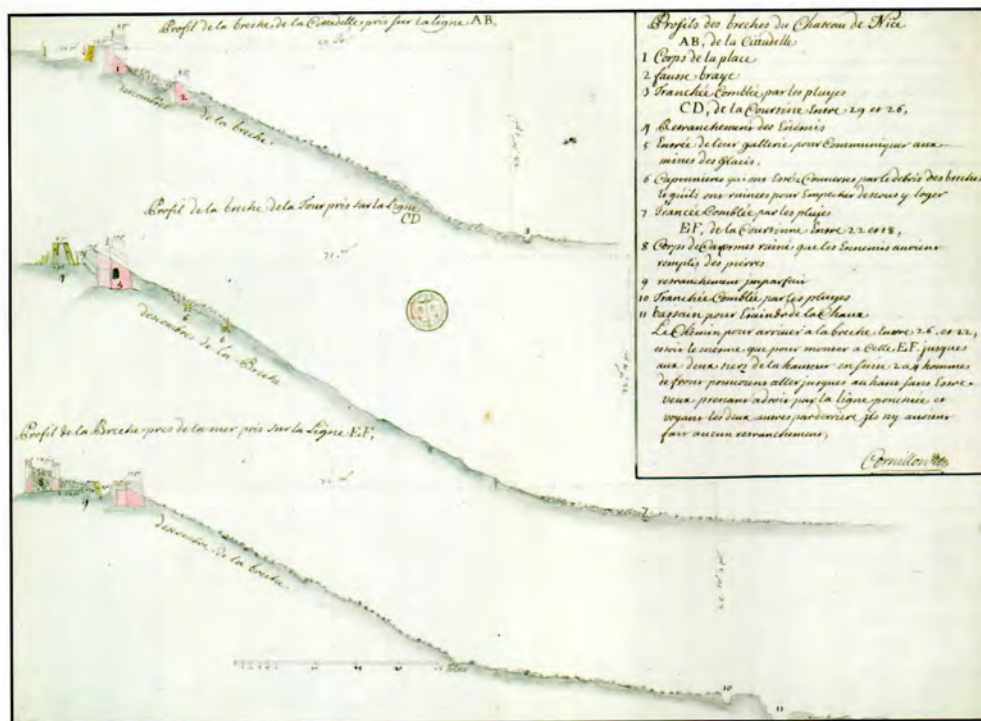 Profil de la breche de la Cittadelle pris sur la ligne AB,
1
2
descombre de la breche
3
Profil de la breche de la Tour pris sur la Ligne
CD
4
5
6
6
descombres de la Breche
7
Profil de la Breche pres de la mer pris sur la Ligne EF,
8
9
descombre de la breche
10
11
Profils des breches du Chateau de Nice
AB, de la Cittadelle
1 Corps de la place
2 fausse braye
3 Tranchée Comblée par les pluyes
CD, de la Courtine Entre 29 et 26,
4 Retranchement des Enemis
5 Entrée de leur gallerie pour Communiquer aux
mines des Glacis,
6 Caponnieres qui ont Couvertes par le debris des breches
et quils ont ruinées pour Empecher de nous y loger
7 Trancée Comblée par les pluyes
EF, de la Courtinne Entre 22 et 18,
8 Corps de Casernes ruiné que les Ennemis avoient
remplis des pierres
9 retranchement imparfait
10 Tranchée Comblée par les pluyes
11 bassain pour Eteindre de la Chaux
Le Chemin pour arriver a la breche Entre 26, et 22,
estoit le mesme que pour monter a Celle EF, jusques
aux deux tiers de la hauteur en suitte 2 a 4 hommes
de front pouvoient aller jusques au haut sans Estre
veux prenant a droit par la ligne ponctuée et
voyant les deux autres par derriere ils ny avoient
fait aucun retranchement,
Cornillon